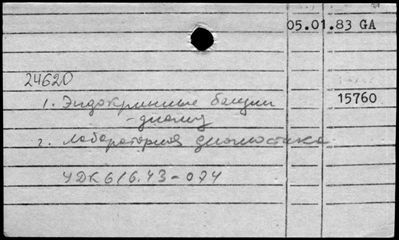 05.01.83 GA
24620
15760
1. Эндокринные
- диагн
2. Лабораторная диагностика
УДК 616.43-074